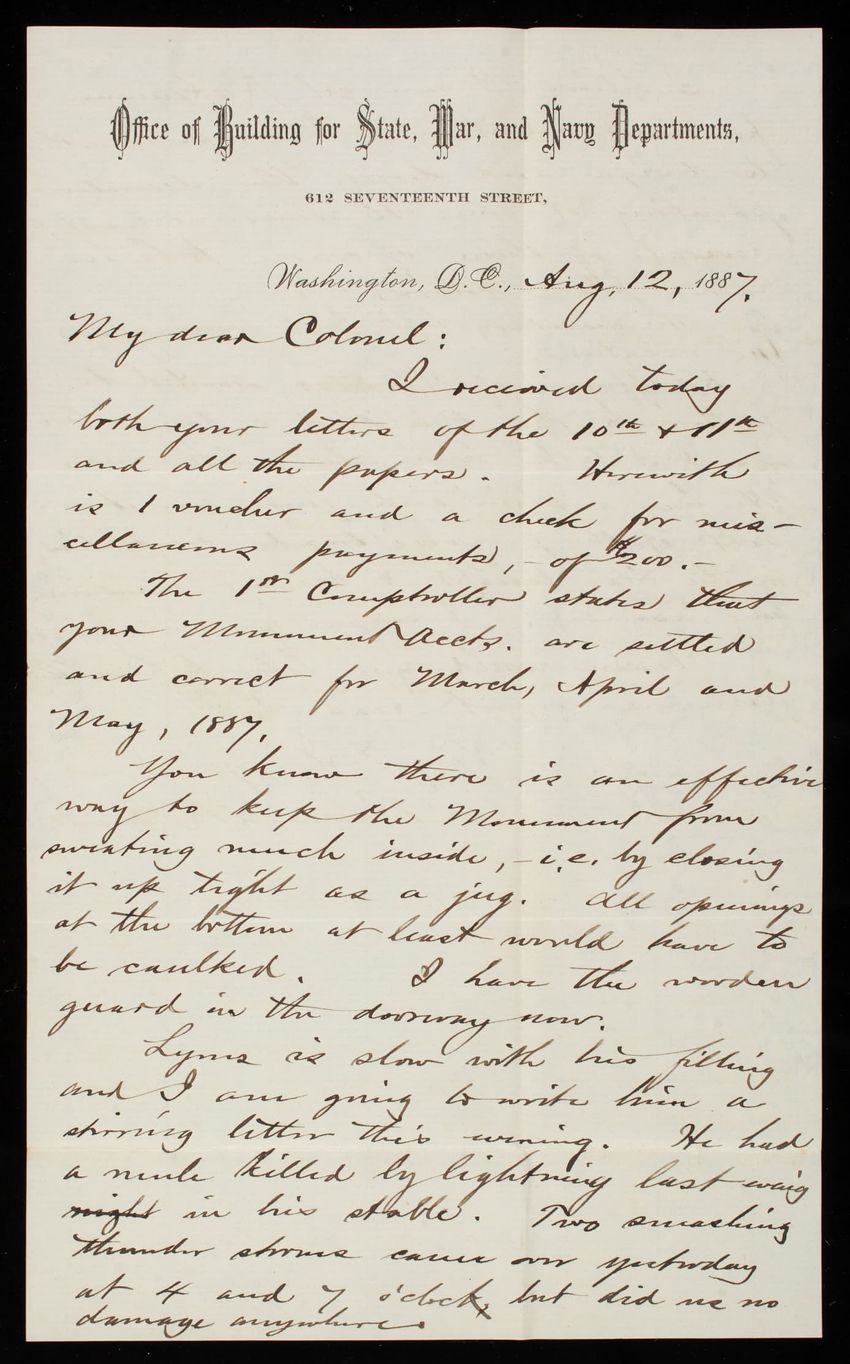 Office of Building for State, War, and Navy Departments,
612 SEVENTEENTH STREET,
Washington, D.C., Aug. 12, 1887.
My dear Colonel:
I received today
both your letters of the 10th & 11th
and all the papers. Herewith
is 1 voucher and a check for mis-
cellaneous payments, - of $200.-
The 1st Comptroller states that
your Monument Accts. are settled
and correct for March, April and
May, 1887.
You know there is an effective
way to keep the Monument from
sweating much inside, - i.e. by closing
it up tight as a jug. All openings
at the bottom at least would have to
be caulked. I have the wooden
guard in the doorway now.
Lyms is slow with his filling
and I am going to write him a
stirring letter this evening. He had
a mule killed by lightning last evaig
night in his stable. Two smashing
thunder storms came over yesterday
at 4 and 7 o'clock, but did us no
damage anywhere.